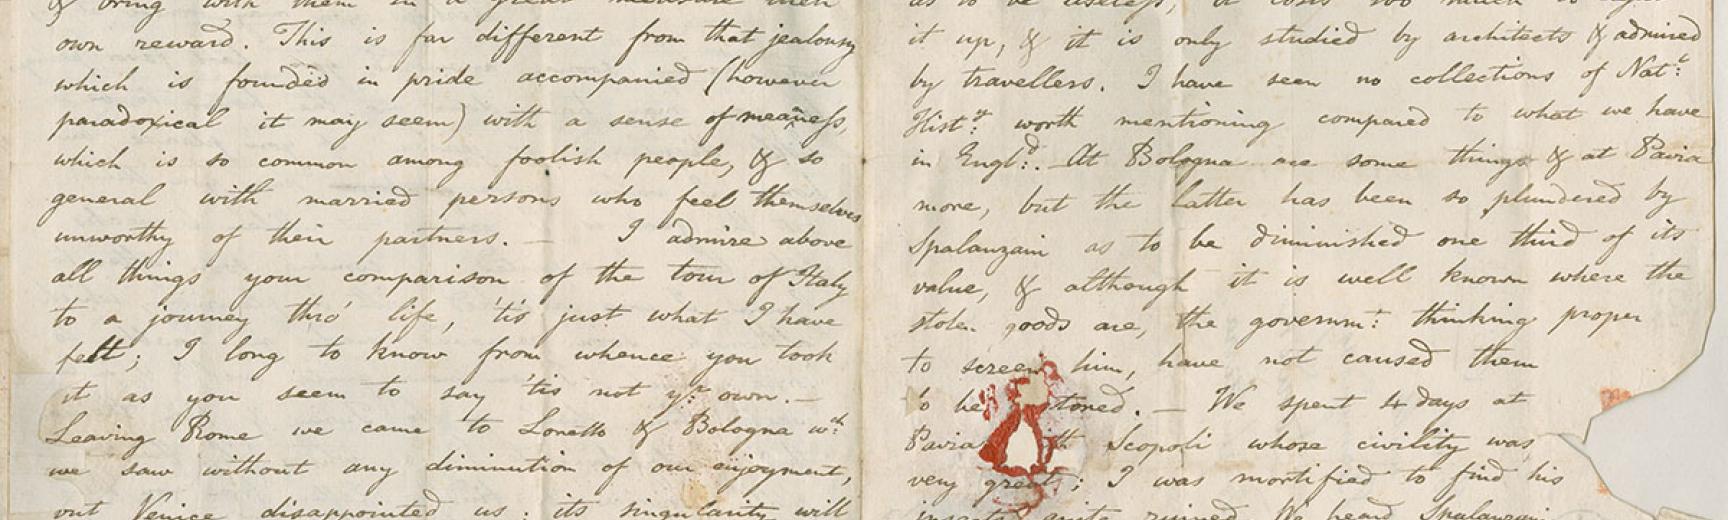 & bring with them in a great measure their
own reward. This is far different from that jealousy
which is founded in pride accompanied (however
paradoxical it may seem) with a sense of meaness,
which is so common among foolish people, & so
general with married persons who feel themselves
unworthy of their partners. — I admire above
all things your comparison of the tour of Italy
to a journey thro' life, 'tis just what I have
felt; I long to know from whence you took
it as you seem to say 'tis not yr. own. —
Leaving Rome we came to Loretto & Bologna wch.
we saw without any diminution of our enjoyment,
but Venice disappointed us; its singularity will
as to be useless, it costs too much to
it up, & it is only studied by architects & admired
by travellers. I have seen no collections of Natl.
Histy. worth mentioning compared to what we have
in Engld. At Bologna are some things & at Pavia
more, but the latter has been so plundered by
Spalanzani as to be diminished one third of its
value, & although it is well known where the
stolen goods are, the governmt. thinking proper
to screen him, have not caused them
to be stored. — We spent 4 days at
Pavia ith Scopoli whose civility was
very great; I was mortified to find his
insects quite ruined. We heard Spalanzani